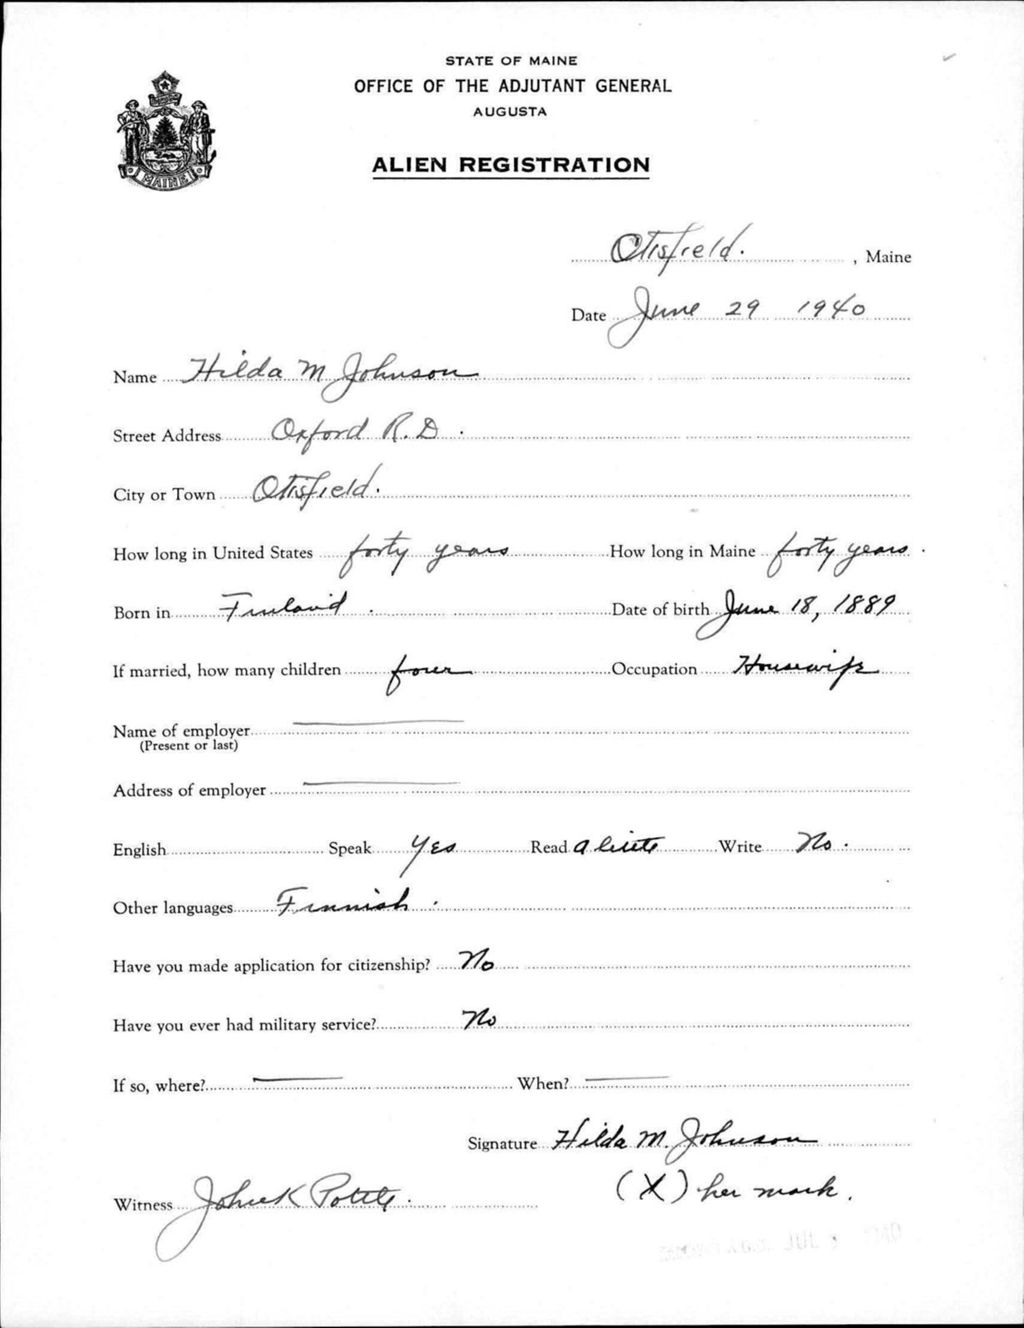 STATE OF MAINE
OFFICE OF THE ADJUTANT GENERAL
AUGUSTA
ALIEN REGISTRATION
MAINE
Otisfield. , Maine
Date June 29 1940
Name Hilda M Johnson
Street Address Oxford R.D.
City or Town Otisfield.
How long in United States forty years How long in Maine forty years.
Born in Finland. Date of birth June 18, 1889
If married, how many children four Occupation Housewife
Name of employer
(Present or last)
Address of employer
English Speak Yes Read a little Write No.
Other languages Finnish.
Have you made application for citizenship? No
Have you ever had military service? No
If so, where? When?
Signature Hilda M. Johnson
(X) her mark.
Witness K
JUL 1940